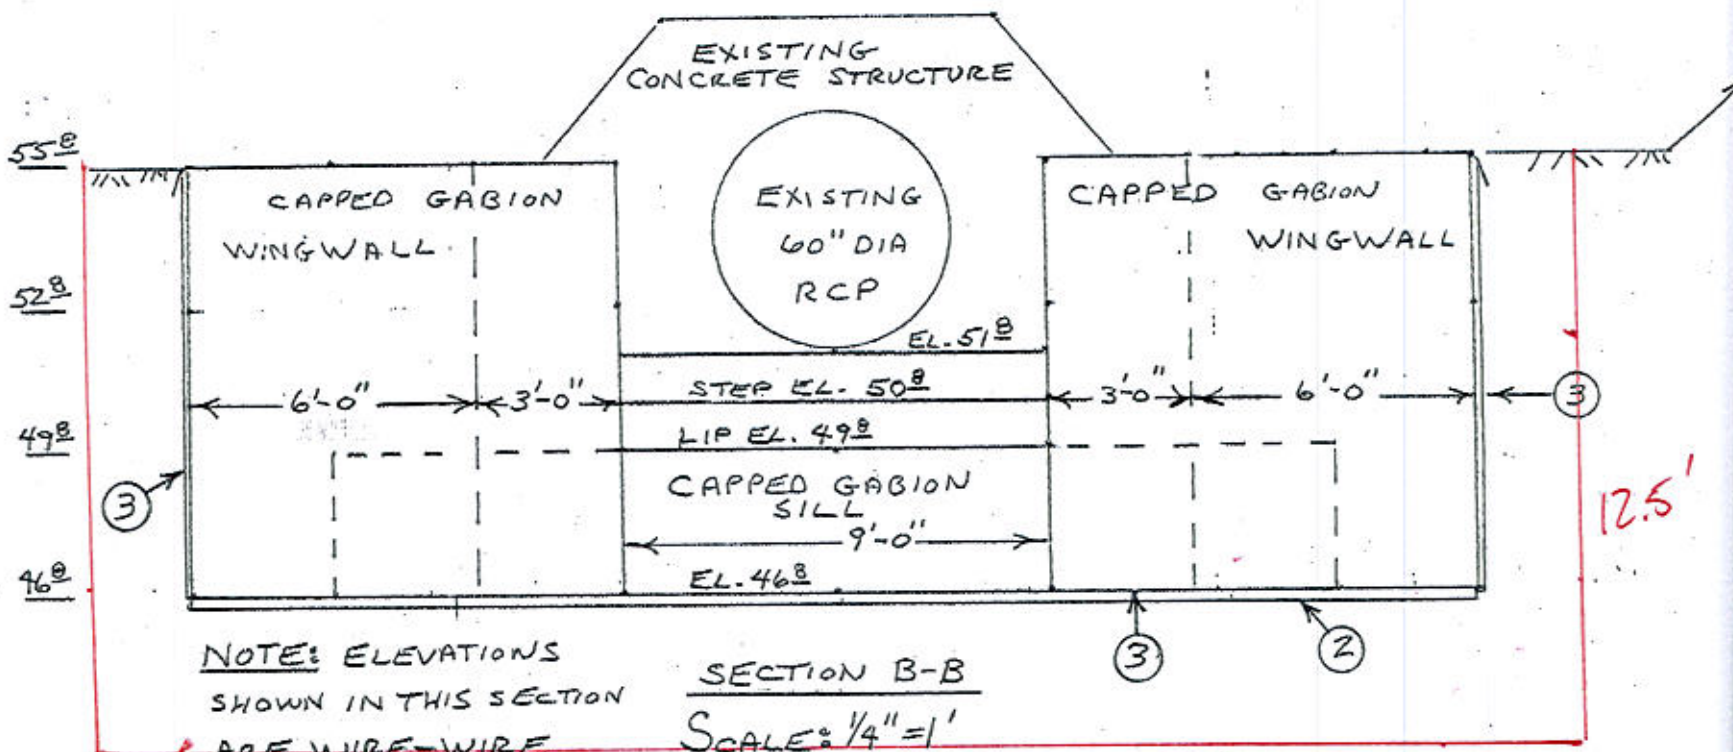 EXISTING
CONCRETE STRUCTURE
55⁸
CAPPED GABION
WINGWALL
EXISTING
60" DIA
RCP
CAPPED GABION
WINGWALL
52⁸
EL. 51⁸
6'-0"
3'-0"
STEP EL. 50⁸
3'-0"
6'-0"
3
49⁸
LIP EL. 49⁸
3
CAPPED GABION
SILL
9'-0"
12.5'
46⁸
EL. 46⁸
3
2
NOTE: ELEVATIONS
SHOWN IN THIS SECTION
ARE WIRE-WIRE
SECTION B-B
SCALE: 1/4"=1'